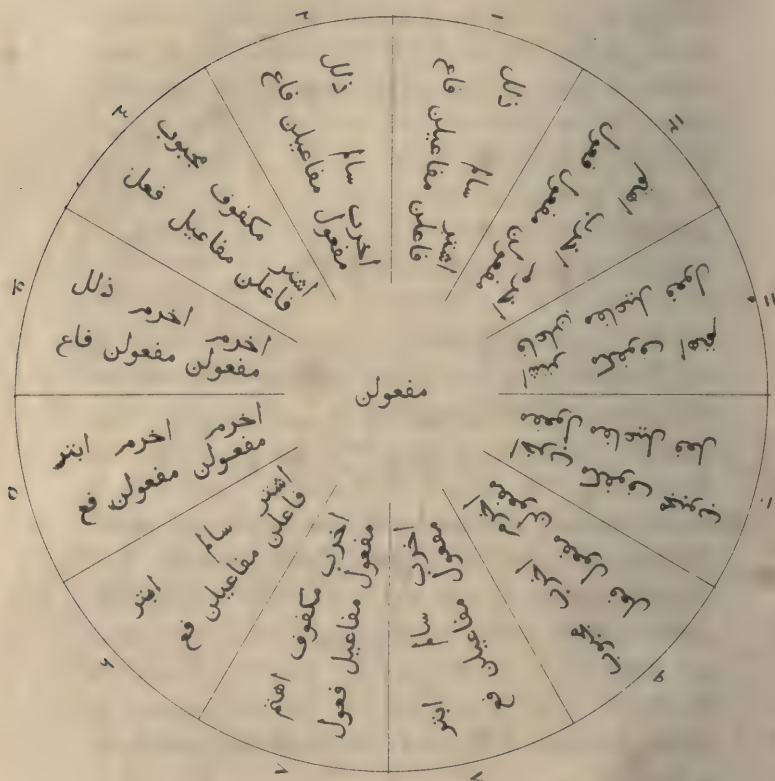 ١
اشتر سالم ذلل
فاعلن مفاعيلن فاع
٢
اخرب سالم ذلل
مفعول مفاعيلن فاع
٣
اشتر مكفوف مجبوب
فاعلن مفاعيل فعل
٤
اخرم اخرم ذلل
مفعولن مفعولن فاع
٥
اخرم اخرم ابتر
مفعولن مفعولن فع
٦
اشتر سالم ابتر
فاعلن مفاعيلن فع
٧
اخرب مكفوف اهتم
مفعول مفاعيل فعول
٨
اخرب سالم ابتر
مفعول مفاعيلن فع
٩
اخرم اخرب مجبوب
مفعولن مفعول فعل
١٠
اخرب مكفوف مجبوب
مفعول مفاعيل فعل
١١
اشتر مكفوف اهتم
فاعلن مفاعيل فعول
١٢
اخرم اخرب اهتم
مفعولن مفعول فعول
مفعولن